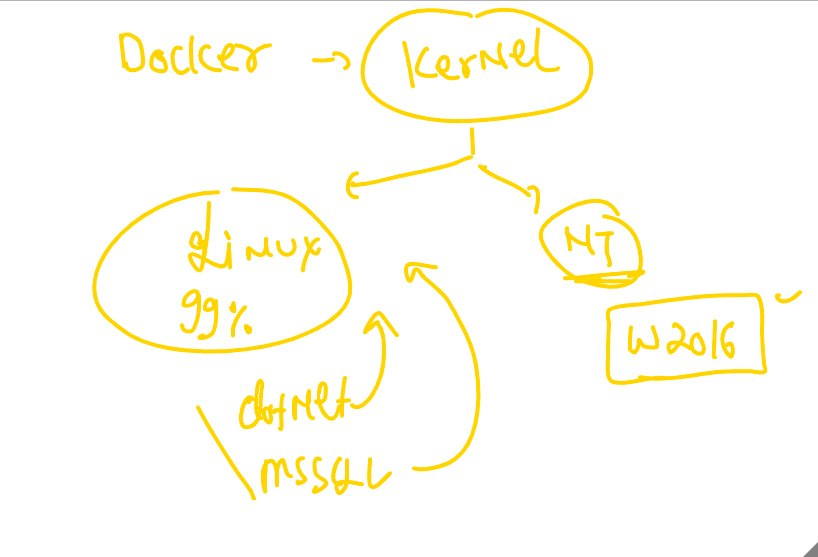 Docker → Kernel
Linux
99%
NT
W2016
dotNet
MSSQL